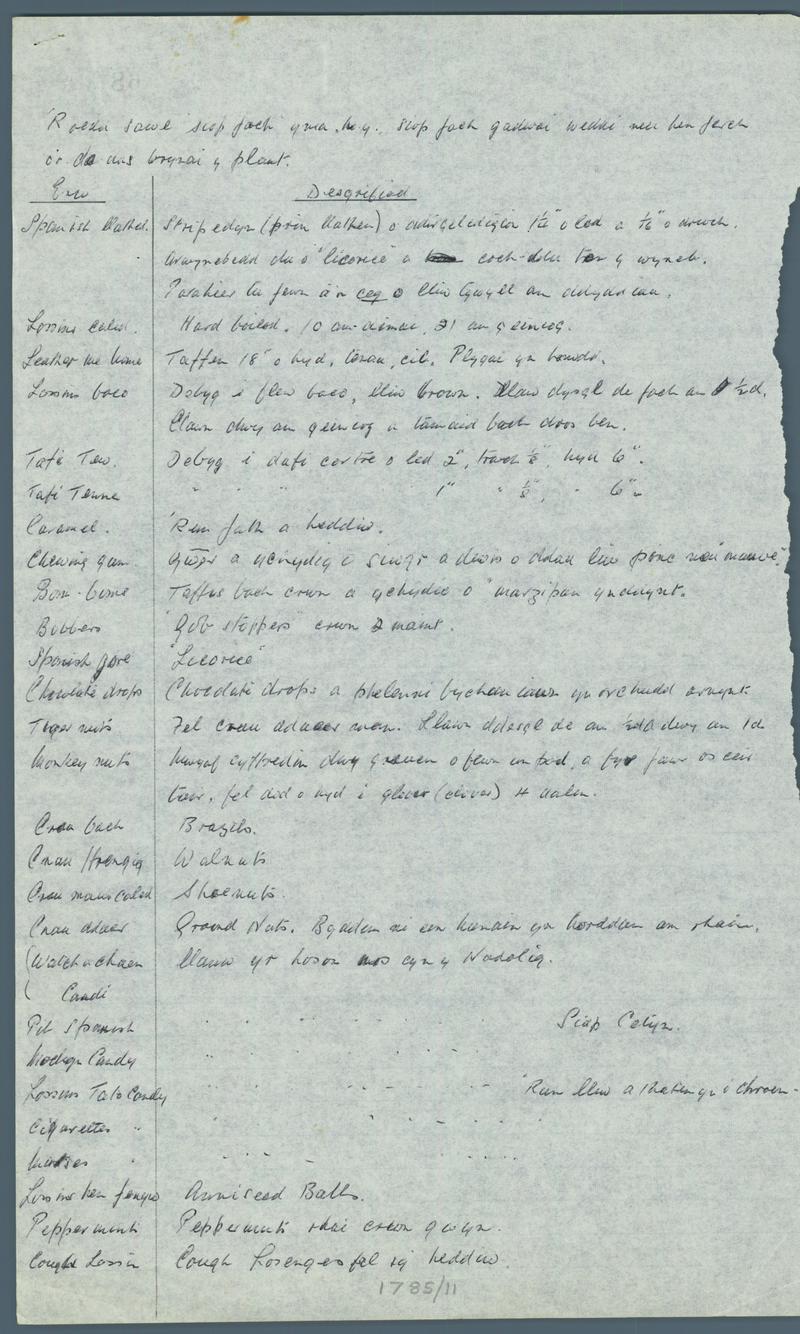 'Roedd sawl siop fach yma, h.y. siop fach gadwai weddi neu hen ferch
o'r da ins brynai y plant.
Enw Desgrifiad
Spanish llathed. Strip edyn (prin llathen) o 1½" o led a 1/16" o drwch.
Arwynebedd du o "licorice" a coch-ddu ten y wyneb.
tu fewn a'n ceg o lliw tywyll am
Lossins caled. Hard boiled. 10 am ddimai, 21 am geiniog.
Leather me home Taffen 18" o hyd, tenau, cil. Plygai yn
Lossins baco Debyg i flew baco, lliw brown. Llaw dysgl de fach am ½d.
Llawn dwy am geiniog a tamaid bach dros ben.
Tafi Tew. Debyg i dafi cartre o led 2", trwch ½", hyd 6".
Tafi Tenne " " " 1" " ⅛", " 6".
Caramel. 'Run fath a heddiw.
Chewing gum. Gwêr a ychydig o siwgr a dewis o ddau liw pinc neu "mauve".
Bom-bome Taffus bach crwn a ychydic o "marzipan" ynddynt.
Bobbers "Gob stoppers" crwn 2 maint.
Spanish pore "Licorice"
Chocolate drops Chocolate drops a phelenni bychan iawn yn orchudd arnynt.
Tiger nuts Fel cnau ddaear man. Llawn ddesgl de am ½d a dwy am 1d
Monkey nuts cyffredin dwy gneuen o fewn un pod, a fyr fawr os ceir
tair. fel did o hyd i glover (clover) 4 dalen.
Cnau bach Brazils.
Cnau Ffrengig Walnuts
Cnau mans caled Shoenuts.
Cnau ddaer Ground Nuts. Bydden ni en hunain yn am rhain.
(Watch a chaen llanw yr hosan nos cyn y Nadolig.
( Candi
Pib Spanish " " " " " " Siap Cetyn.
Mochyn Candy " " " " "
Lossins Tato Candy " " " " " 'Run lliw a thaten yn i chroen-
Cigarettes " " " "
" " " " "
Lossins hen fenyw Anniseed Balls.
Peppermints Peppermints rhai crwn gwyn.
Cough Lossin Cough Losenges fel sy heddiw.
1785/11